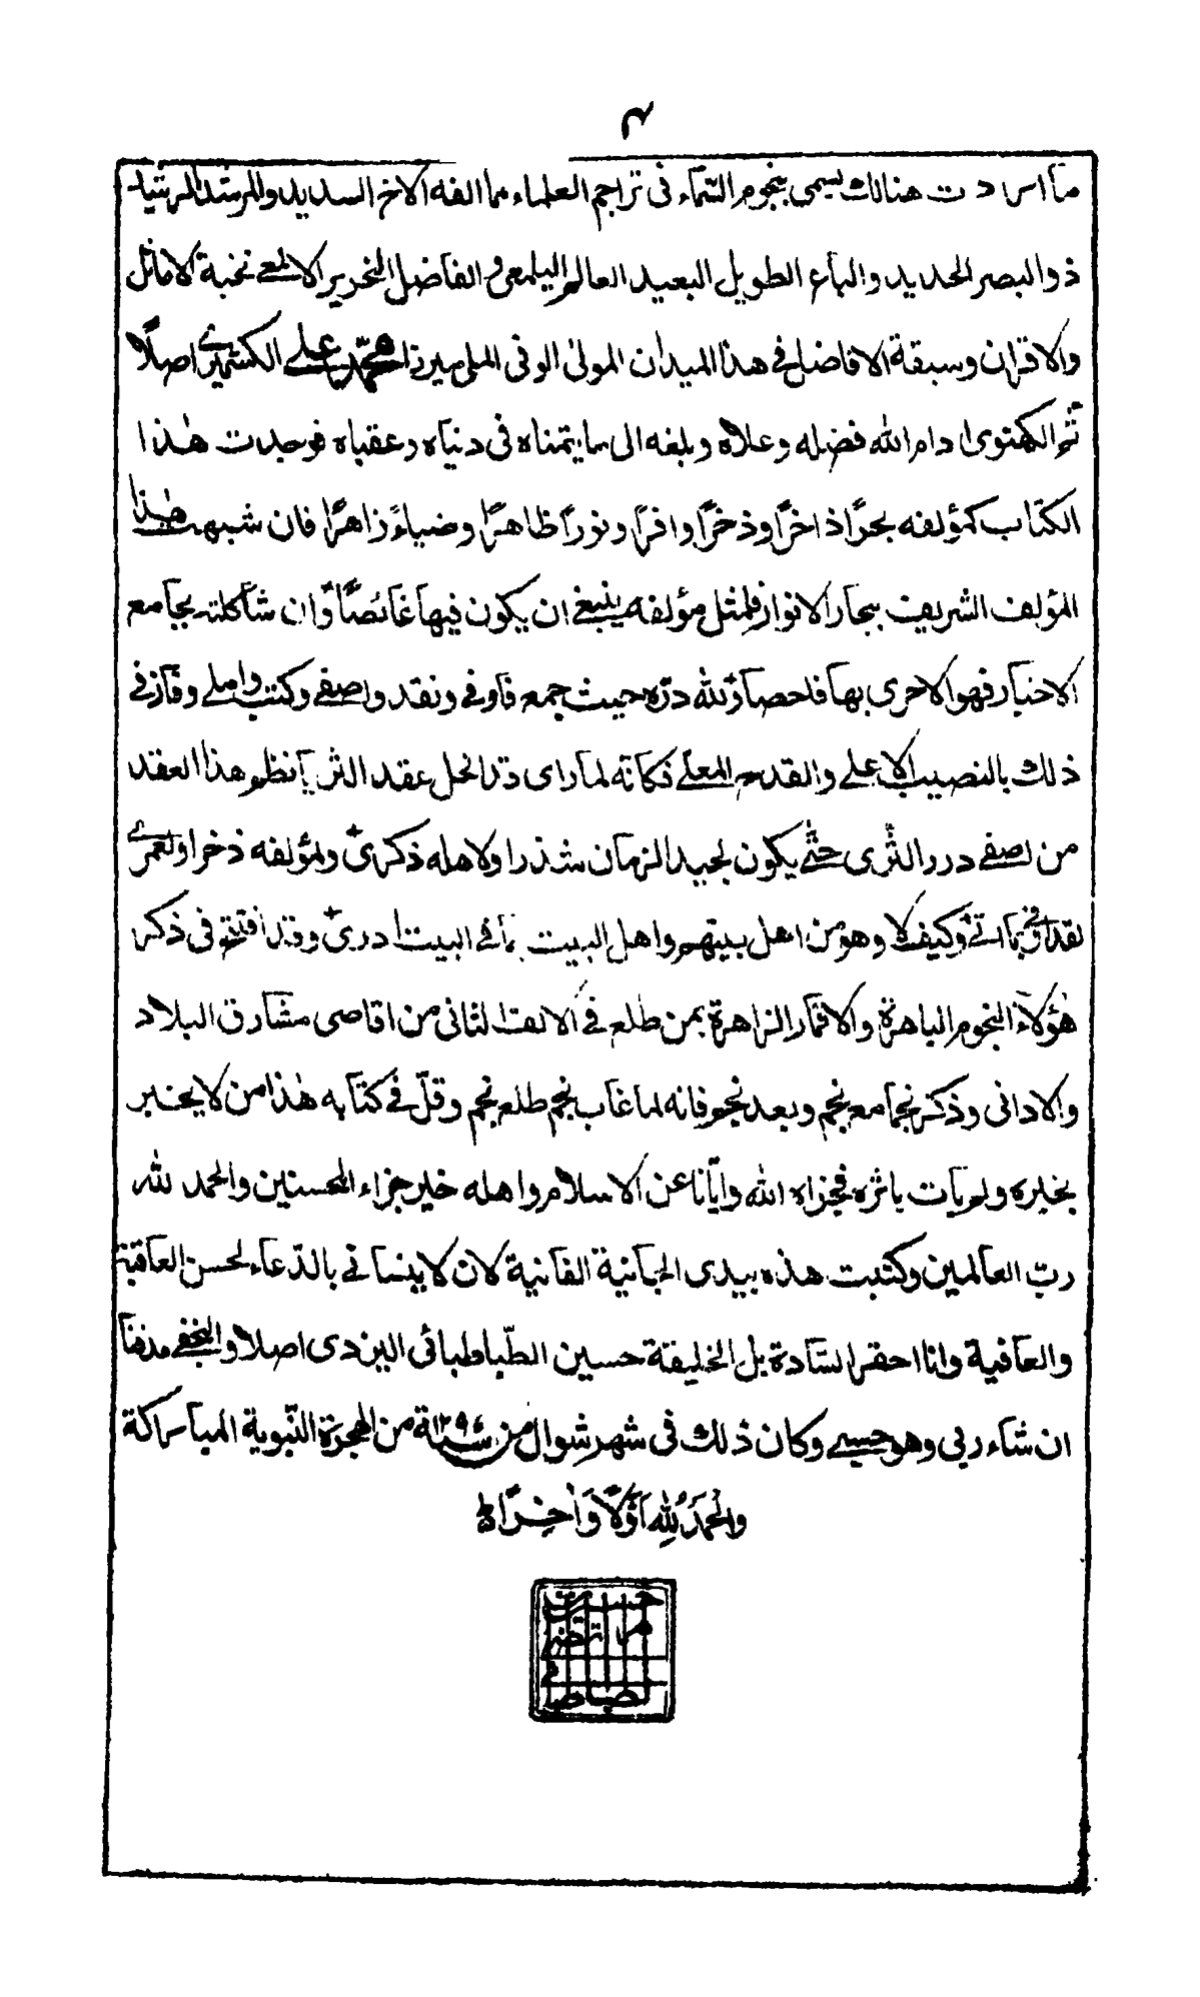 ۴
ما اردت هنالك يسمى بنجوم السّمآء فى تراجم العلماء مما الفه الاخ السديد والمرشد الرشيد
ذو البصر الحديد والباع الطويل البعيد العالم اليلمعى و الفاضل النحرير الالمعے نخبة الاماثل
والاقران وسبقة الافاضل فى هذا الميدان المولىٰ الوفى الملى ميرزا محمّد علے الكشميرے اصلًا
ثم الكهنوى ادام الله فضله وعلاه وبلغه الى ما يتمناه فى دنياه وعقباه فوجدت هٰذا
الكتاب كمؤلفه بحرًا ذاخرًا وذخرًا وافرًا ونورًا ظاهرًا وضياءً زاهرًا فان شبهت هٰذا
المؤلف الشريف ببحار الانوار فلمثل مؤلفه ينبغے ان يكون فيها غآئصًا وّان شاكلته بجامع
الاخبار فهو الاحرى بها فلحصار لله درّه حيث جمع فاوفے ونقد واصفے وكتب واملے وفاز فے
ذلك بالنصيب الاعلے والقدح المعلّے فكانّه لما راى قد انحل عقد الثريا نظم هذا العقد
من اصفے درر الثرى حتّے يكون لجيد الزمان شذرا ولاهله ذكرىً ولمؤلفه ذخرا ولعمرے
لقد اتى بما اتے وكيف لا وهو من اهل بيتهم واهل البيت بما فے البيت ادرىٰ وقد افتتح فى ذكر
هٰؤلاء النجوم الباهرة والاقمار الزاهرة بمن طلع فے الالف الثانى من اقاصى مشارق البلاد
والادانى وذكر نجما مع نجم وبعد نجم فانه لما غاب نجم طلع نجم وقلّ فے كتابه هٰذا من لا يخبر
بخبره ولم يات باثره فجزاه الله وايّانا عن الاسلام واهله خير جزاء المحسنين والحمد لله
ربّ العالمين وكتبت هذه بيدى الجانية الفانية لان لا ينسانے بالدّعآء لحسن العاقبة
والعافية وانا احقر السّادة بل الخليقة حسين الطّباطبائى اليزدى اصلا والنجفے مدفنا
ان شاء ربى وهو حسبے وكان ذلك فى شهر شوال من سنة ١٢٩٤ من الهجرة النّبوية المباركة
والحمدُ لِلّٰهِ اَوَّلًا وَاٰخِرًا
حسين
من